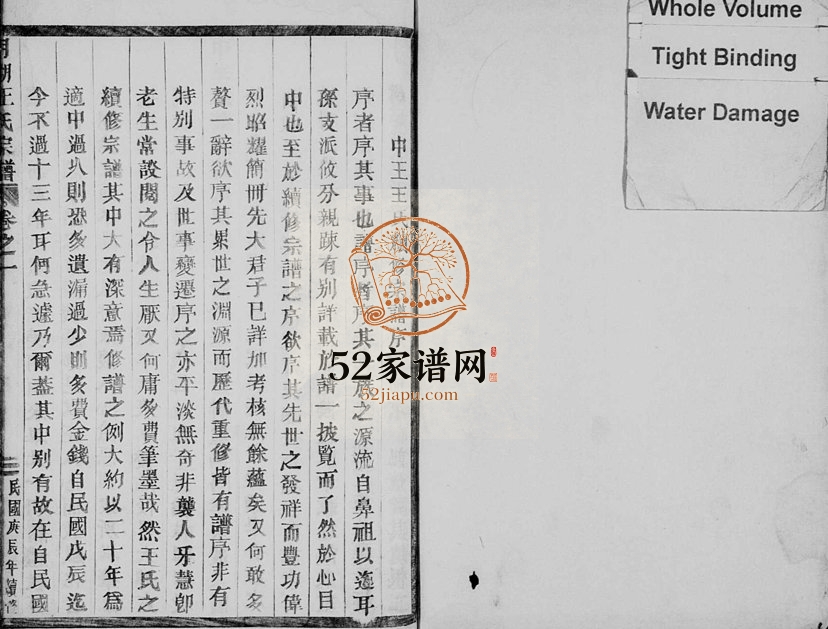 中王王氏續修宗譜序
序者序其事也譜序者序其族之源流自鼻祖以迄耳
孫支派攸分親疎有別詳載於譜一披覽而了然於心目
中也至於續修宗譜之序欲序其先世之發祥而豐功偉
烈昭耀簡冊先大君子已詳加考核無餘蘊矣又何敢多
贅一辭欲序其累世之淵源而歷代重修皆有譜序非有
特別事故及世事變遷序之亦平淡無奇非襲人牙慧卽
老生常談閱之令人生厭又何庸多費筆墨哉然王氏之
續修宗譜其中大有深意焉修譜之例大約以二十年爲
適中過久則恐多遺漏過少則多費金錢自民國戊辰迄
今不過十三年耳何急遽乃爾蓋其中別有故在自民國
湖王氏宗譜 卷之一
民國庚辰年續修
52家谱网
52jiapu.com
Whole Volume
Tight Binding
Water Damage